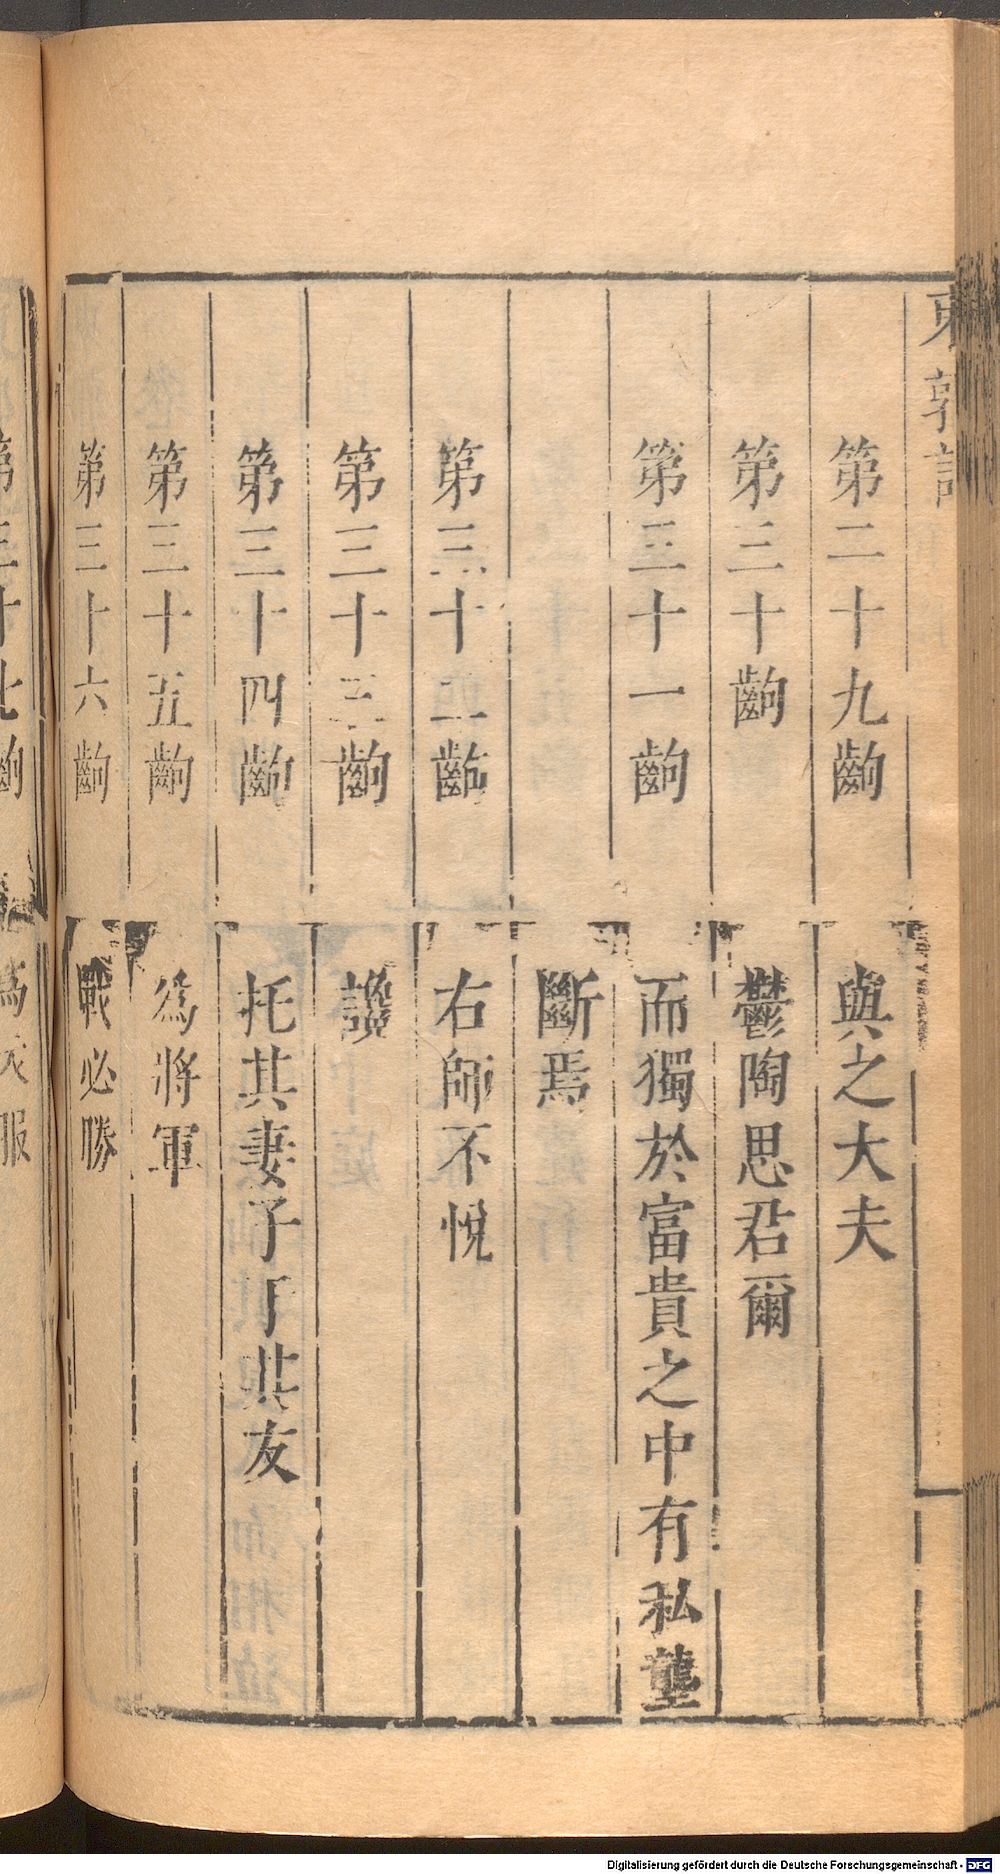 第二十九齣 與之大夫
第三十齣 鬱陶思君爾
第三十一齣 而獨於富貴之中有私壟
斷焉
第三十二齣 右師不悅
第三十三齣 讒
第三十四齣 托其妻子于其友
第三十五齣 爲將軍
第三十六齣 戰必勝
Digitalisierung gefördert durch die Deutsche Forschungsgemeinschaft - DFG